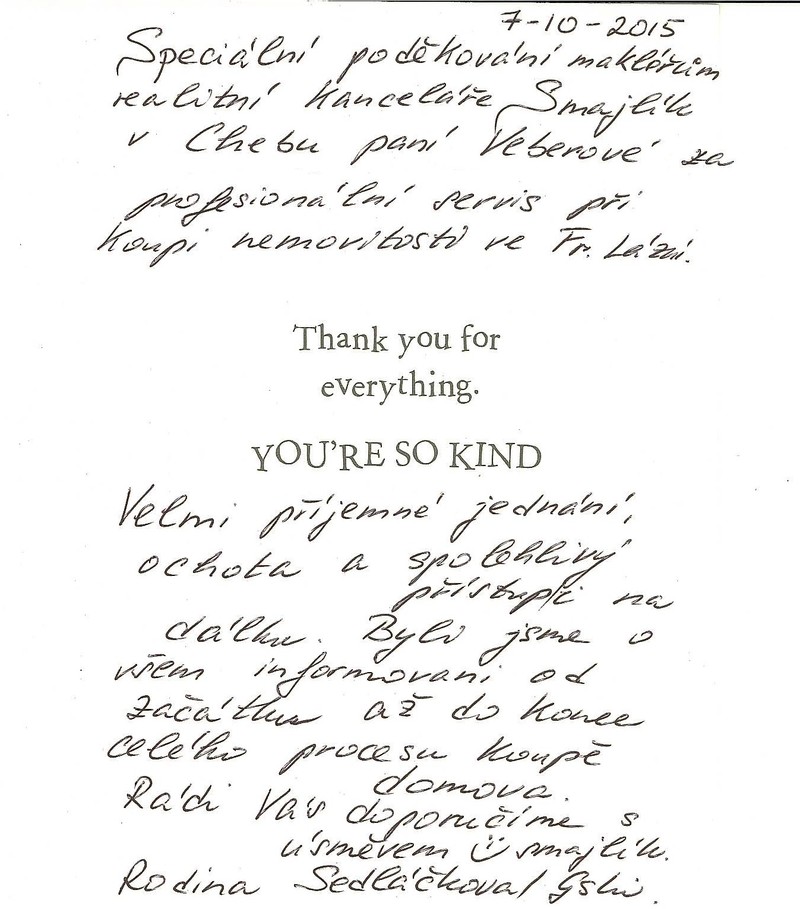 7-10-2015
Speciální poděkování makléřům
realitní kanceláře Smajlík
v Chebu paní Veberové za
profesionální servis při
koupi nemovitosti ve Fr. Lázní.
Thank you for
everything.
YOU'RE SO KIND
Velmi příjemné jednání,
ochota a spolehlivý
přístup i na
dálku. Byli jsme o
všem informovani od
začátku až do konce
celého procesu koupě
domova.
Rádi Vás doporučíme s
úsměvem ☺ smajlík.
Rodina Sedláčkova